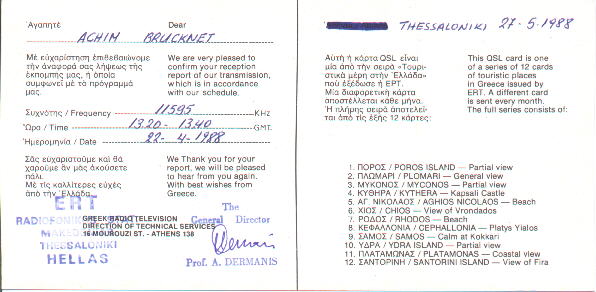 Ἀγαπητέ Dear
ACHIM BRUCKNET
Μέ εὐχαρίστηση ἐπιβεβαιώνομε
τήν ἀναφορά σας λήψεως τῆς
ἐκπομπῆς μας, ἡ ὁποία
συμφωνεῖ μέ τό πρόγραμμά
μας.
We are very pleased to
confirm your reception
report of our transmission,
which is in accordance
with our schedule.
Συχνότης / Frequency 11595 KHz
Ὥρα / Time 13.20 - 13.40 GMT.
Ἡμερομηνία / Date 22-4-1988
Σᾶς εὐχαριστοῦμε καί θά
χαροῦμε ἄν μᾶς ἀκούσετε
πάλι.
Μέ τίς καλλίτερες εὐχές
ἀπό τήν Ἑλλάδα.
We Thank you for your
report, we will be pleased
to hear from you again.
With best wishes from
Greece.
ERT
THESSALONIKI
HELLAS
GREEK RADIO TELEVISION
DIRECTION OF TECHNICAL SERVICES
16 MOUROUZI ST. - ATHENS 138
The
General Director
Prof. A. DERMANIS
THESSALONIKI 27-5-1988
Αὐτή ἡ κάρτα QSL εἶναι
μία ἀπό τήν σειρά «Τουρι-
στικά μέρη στήν Ἑλλάδα»
πού ἐξέδωσε ἡ ΕΡΤ.
Μία διαφορετική κάρτα
ἀποστέλλεται κάθε μήνα.
Ἡ πλήρης σειρά ἀποτελεῖ-
ται ἀπό τίς ἑξῆς 12 κάρτες:
This QSL card is one
of a series of 12 cards
of touristic places
in Greece issued by
ERT. A different card
is sent every month.
The full series consists of:
1. ΠΟΡΟΣ / POROS ISLAND — Partial view
2. ΠΛΩΜΑΡΙ / PLOMARI — General view
3. ΜΥΚΟΝΟΣ / MYCONOS — Partial view
4. ΚΥΘΗΡΑ / KYTHERA — Kapsali Castle
5. ΑΓ. ΝΙΚΟΛΑΟΣ / AGHIOS NICOLAOS — Beach
6. ΧΙΟΣ / CHIOS — View of Vrondados
7. ΡΟΔΟΣ / RHODOS — Beach
8. ΚΕΦΑΛΛΟΝΙΑ / CEPHALLONIA — Platys Yialos
9. ΣΑΜΟΣ / SAMOS — Calm at Kokkari
10. ΥΔΡΑ / YDRA ISLAND — Partial view
11. ΠΛΑΤΑΜΩΝΑΣ / PLATAMONAS — Coastal view
12. ΣΑΝΤΟΡΙΝΗ / SANTORINI ISLAND — View of Fira